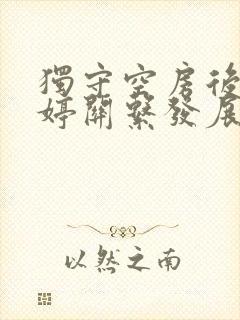 獨守空房後
婷關繫發展
以然之南